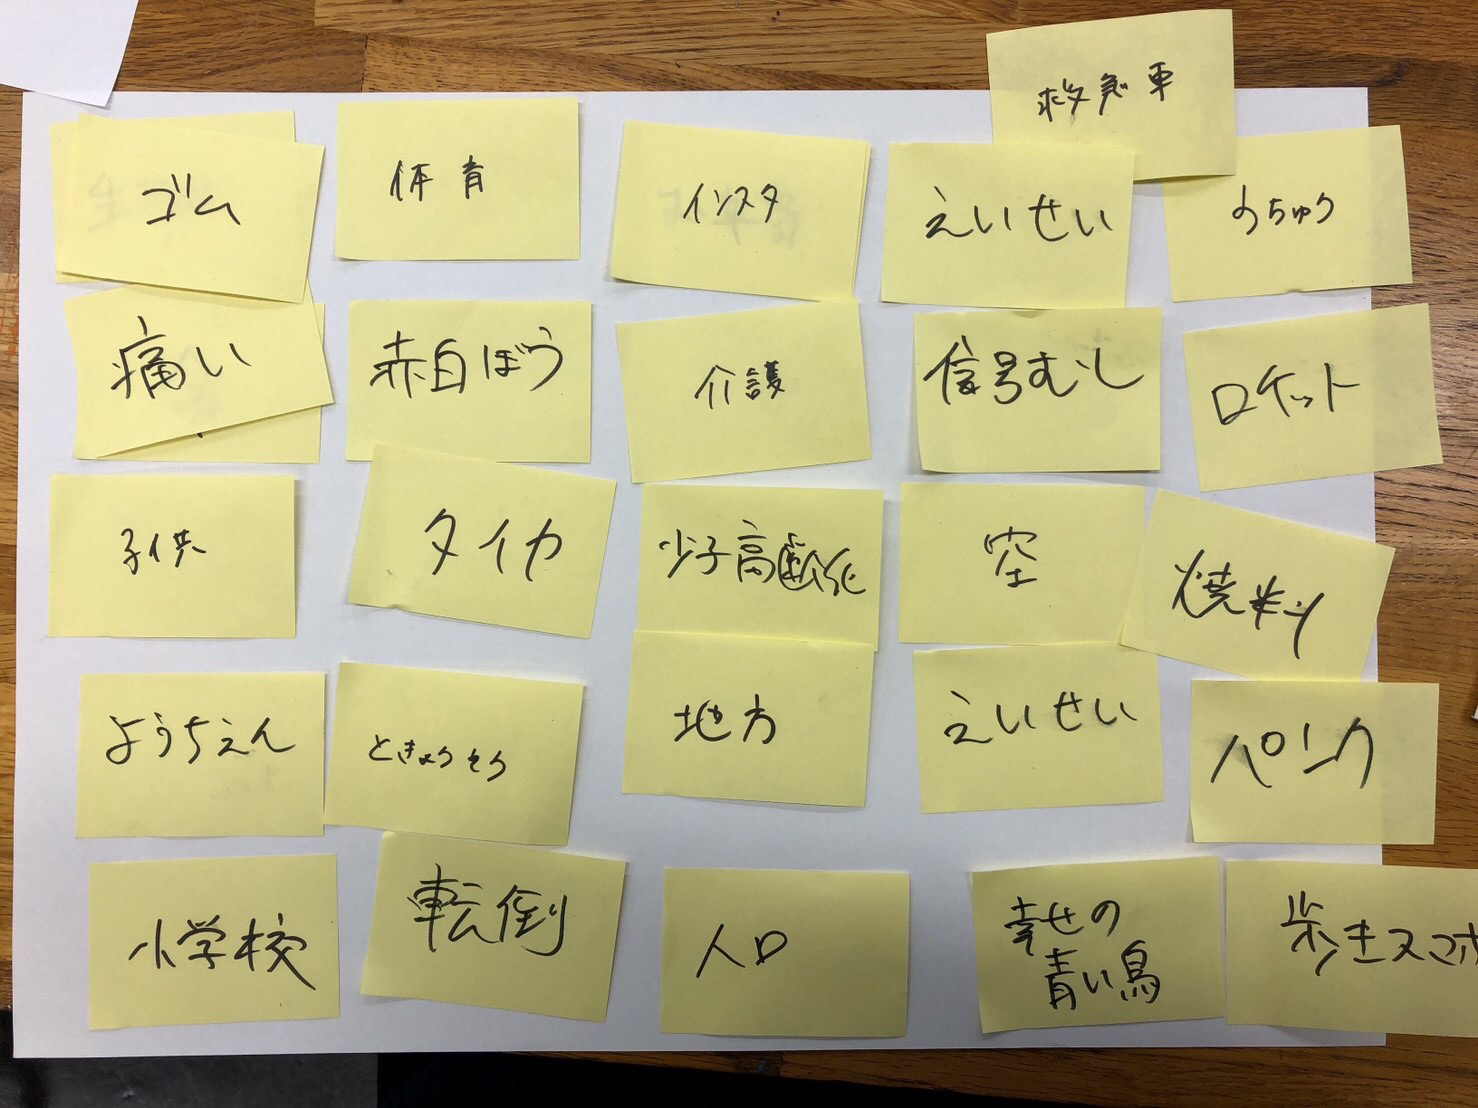 救急車
ゴム
体育
インスタ
えいせい
うちゅう
痛い
赤白ぼう
介護
信号むし
ロケット
子供
タイカ
少子高齢化
空
燃料
ようちえん
ときょうそう
地方
えいせい
パンク
小学校
転倒
人口
幸せの
青い鳥
歩きスマホ